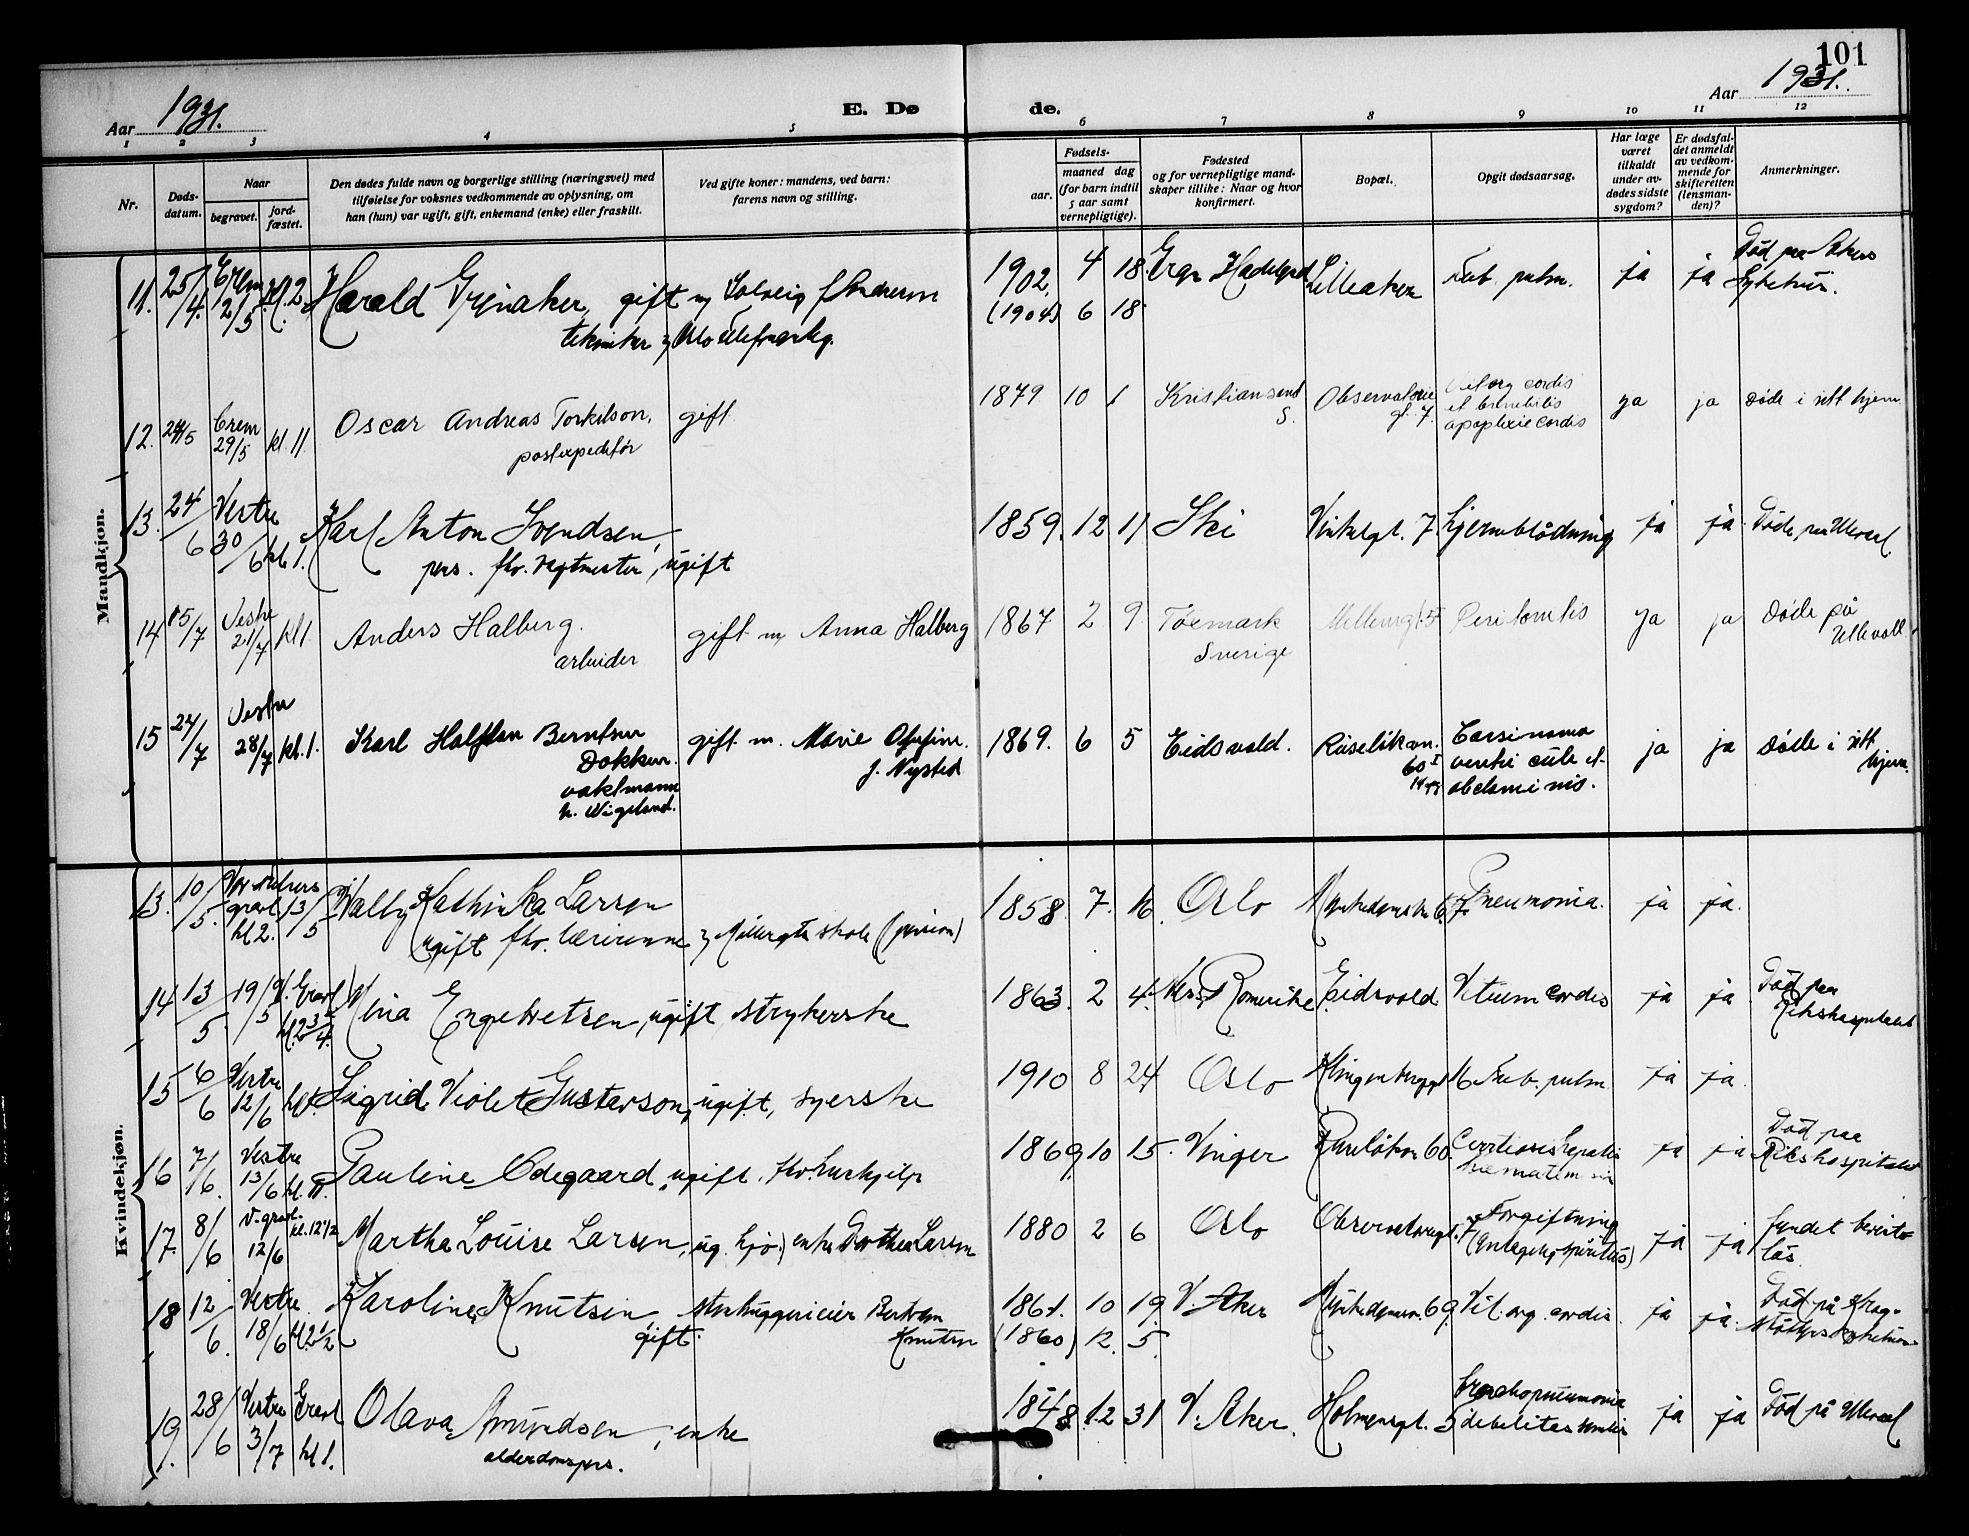 101
Aar 1931.
E. Dø de.
Aar 1931.
1 2 3 4 5 6 7 8 9 10 11 12
Nr.
Døds-
datum.
Naar
begravet.
jord-
fæstet.
Den dødes fulde navn og borgerlige stilling (næringsvei) med
tilføielse for voksnes vedkommende av oplysning, om
han (hun) var ugift, gift, enkemand (enke) eller fraskilt.
Ved gifte koner: mandens, ved barn:
farens navn og stilling.
Fødsels-
aar.
maaned dag
(for barn indtil
5 aar samt
vernepligtige).
Fødested
og for vernepligtige mand-
skaper tillike: Naar og hvor
konfirmert.
Bopæl.
Opgit dødsaarsag.
Har læge
været
tilkaldt
under av-
dødes sidste
sygdom?
Er dødsfal-
det anmeldt
av vedkom-
mende for
skifteretten
(lensman-
den)?
Anmerkninger.
Mandkjøn.
11. 25/4. Crem 2/5 kl. 2 Harald Grinaker, gift m Solveig f Andersen
tekniker
1902. 4 18 Lilleaker Tub. pulm. ja ja Död paa Akers
Sykehus.
(1904) 6 18
12. 24/5 Crem 29/5 kl 11 Oscar Andreas Torkilson, gift
postexpeditør
1879 10 1 Kristiansand S. Observatorie gt. 7. cordis
apoplexie cordis
ja ja døde i sitt hjem
13. 24/6 Vestre 30/6 kl 1. Karl Anton Svendsen,
pens. fhv. vagtmester, ugift
1859. 12 11 Ski Vinkelgt. 7. hjerneblödning ja ja Döde paa Ulleval
14 15/7 Vestre 21/7 kl 1 Anders Halberg. gift m, Anna Halberg
arbeider
1867 2 9 Töcmark
Sverige
5 Peritonitis ja ja døde på
Ullevoll
15 24/7 Vestre 28/7 kl. 1. Karl Halfdan Berntsen gift m. Marie
f. Nysted
Dokkun.
vaktmann
h. Wigeland.
1869. 6 5 Eidsvold. Ruseløkvn.
60 I
Carsinoma
ventri culi et
abdominis.
ja ja døde i sitt
hjem.
Kvindekjøn.
13. 10/5. Vor Frelsers
gravl. 13/5
kl 2.
Wally Kathinka Larsen
ugift fhv. lærerinne v Möllergtn skole (pension)
1858. 7. 16 Oslo 67 Pneumonia. ja ja.
14 13/5 19/5 V. Gravl
kl. 2 3/4.
Mina Engebretsen, ugift, strykerske
1863. 2 4. Romerike Eidsvold Vitium cordis ja ja Död paa
Rikshospitalet
15 6/6 Vestre 12/6 kl 1. Sigrid Violet Gustavson, ugift, syerske
1910 8 24 Oslo Klingenberggt 16 Tub. pulm. ja ja.
16 7/6. Vestre 13/6 kl. 11. Pauline Ödegaard, ugift, fhv. hushjelp
1869. 10 15. Vinger Ruseløkvn 60. hepatis
ja ja Död paa
Rikshospitalet
17. 8/6 V. gravl. 12/6 kl. 12 1/2 Martha Louise Larsen, ug. hjv.) enke Dorthea Larsen
1880 2 6 Oslo Observatoregt. 7 Forgiftning
(antagelig spiritus)
ja ja fundet bevisst
lös.
18 12/6. Vestre 18/6 kl. 2 1/2 Karoline Knutsen, gift. Bertram
Knutsen
1861. 10 19. V Aker Munkedamsvn. 69 Vit. org. cordis. ja ja. Död på Krog-
stöttens sykehus
(1860) 12. 5.
19. 28/6 Vestre 3/7 Gravl kl 1. Olava Amundsen, enke
alderdomspens.
1848. 12 31 V. Aker. Holmensgt. 5 bronchopneumonia
debilitas senilis
ja ja Död på Ulleval